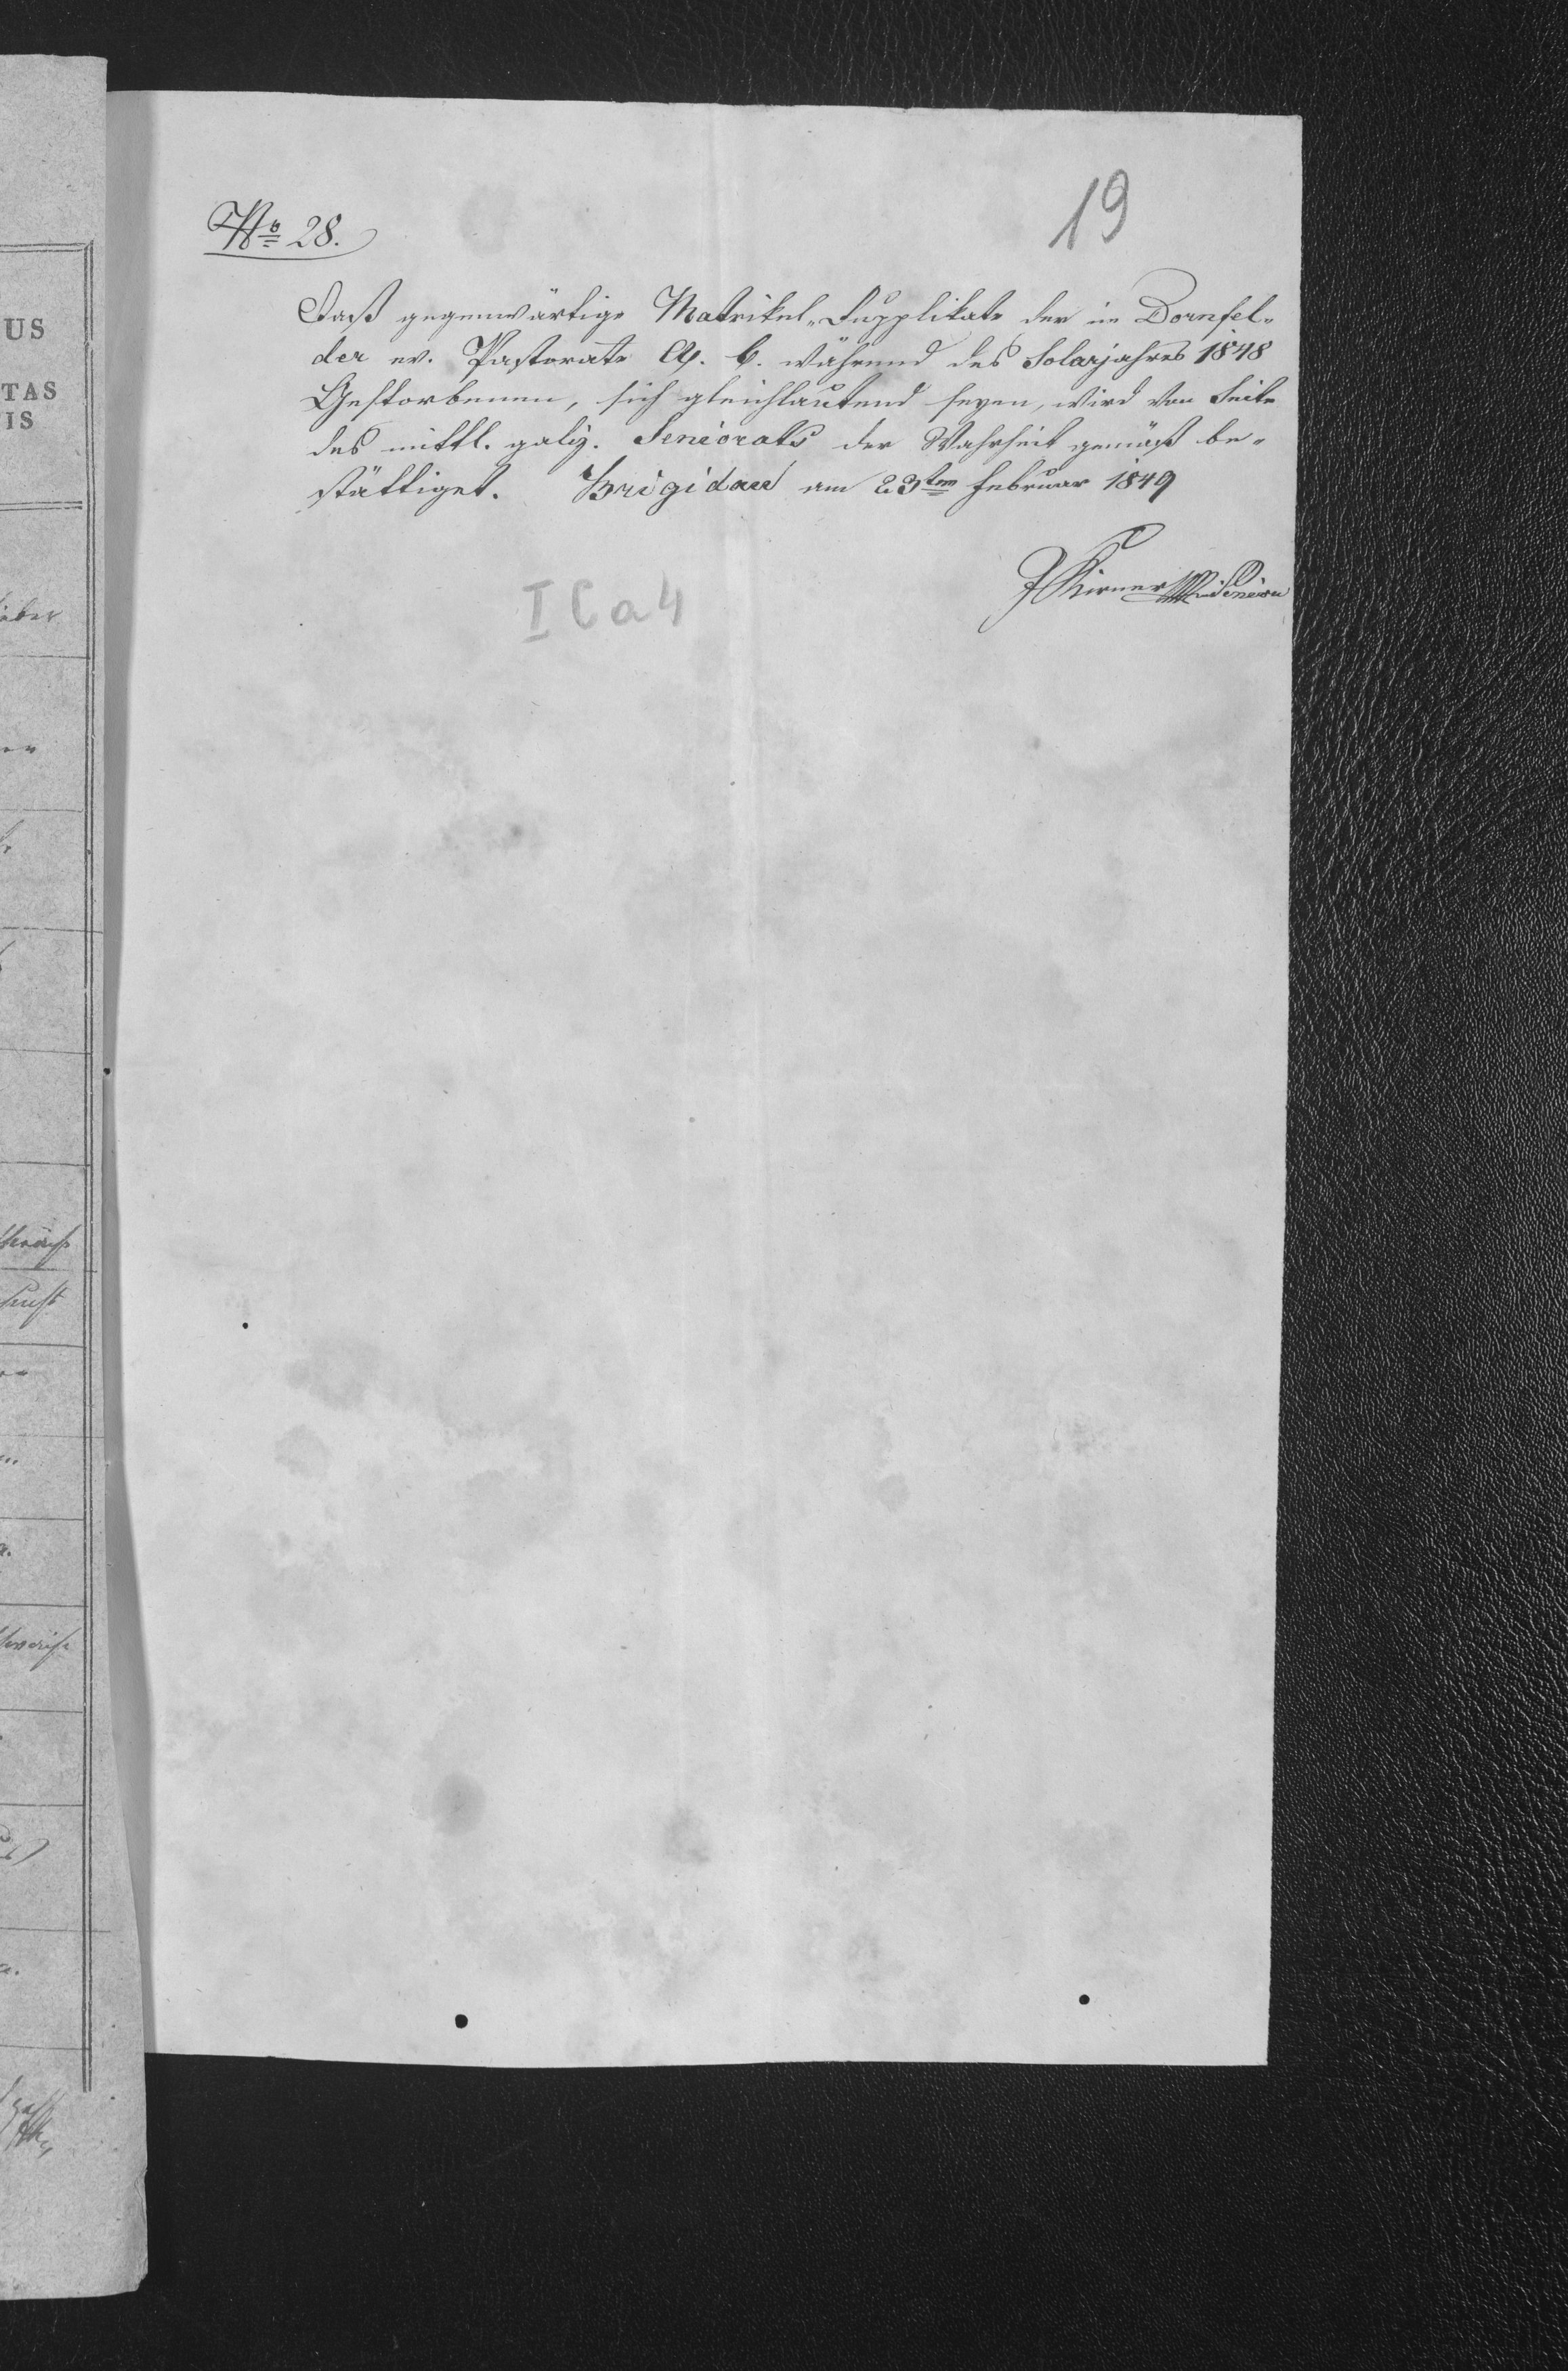 19
No 28.
Daß gegenwärtige Matrikel-Dupplikate der im Dornfel-
der ev. Pastorate A. C. während des Solarjahres 1848
Gestorbenen, sich gleichlautend seyen, wird von Seite
des mittl. galiz. Seniorats der Wahrheit gemäß be-
stättiget. Brigidau am 23ten Februar 1849
Senior
I C a 4
US
TAS
IS